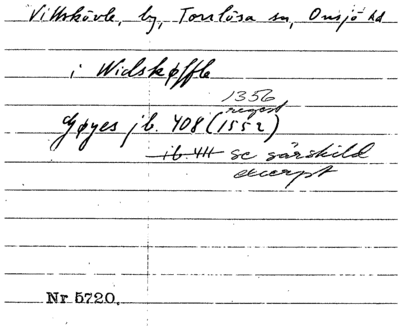 Vittskövle, by, Torrlösa sn, Onsjö hd
i Widskøffle
1356
regest
Gøyes jb. 408 (1552)
ib. 411 se särskild
excerpt
Nr 5720.